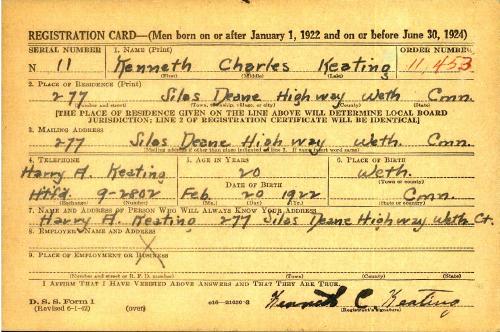 REGISTRATION CARD—(Men born on or after January 1, 1922 and on or before June 30, 1924)
SERIAL NUMBER 1. NAME (Print) ORDER NUMBER
N 11 Kenneth Charles Keating 11,453
(First) (Middle) (Last)
2. PLACE OF RESIDENCE (Print)
277 Silas Deane Highway Weth Cnn.
(Number and street) (Town, township, village, or city) (County) (State)
[THE PLACE OF RESIDENCE GIVEN ON THE LINE ABOVE WILL DETERMINE LOCAL BOARD
JURISDICTION; LINE 2 OF REGISTRATION CERTIFICATE WILL BE IDENTICAL]
3. MAILING ADDRESS
277 Silas Deane Highway Weth. Cnn.
(Mailing address if other than place indicated on line 2. If same insert word same)
4. TELEPHONE 5. AGE IN YEARS 6. PLACE OF BIRTH
Harry A. Keating 20 Weth.
DATE OF BIRTH (Town or county)
Htfd. 9-2802 Feb 20 1922 Cnn.
(Exchange) (Number) (Mo.) (Day) (Yr.) (State or country)
7. NAME AND ADDRESS OF PERSON WHO WILL ALWAYS KNOW YOUR ADDRESS
Harry A. Keating 277 Silas Deane Highway Weth Ct.
8. EMPLOYER'S NAME AND ADDRESS
X
9. PLACE OF EMPLOYMENT OR BUSINESS
(Number and street or R. F. D. number) (Town) (County) (State)
I AFFIRM THAT I HAVE VERIFIED ABOVE ANSWERS AND THAT THEY ARE TRUE.
D. S. S. Form 1 Kenneth C. Keating
(Revised 6-1-42) (over) (Registrant's signature)